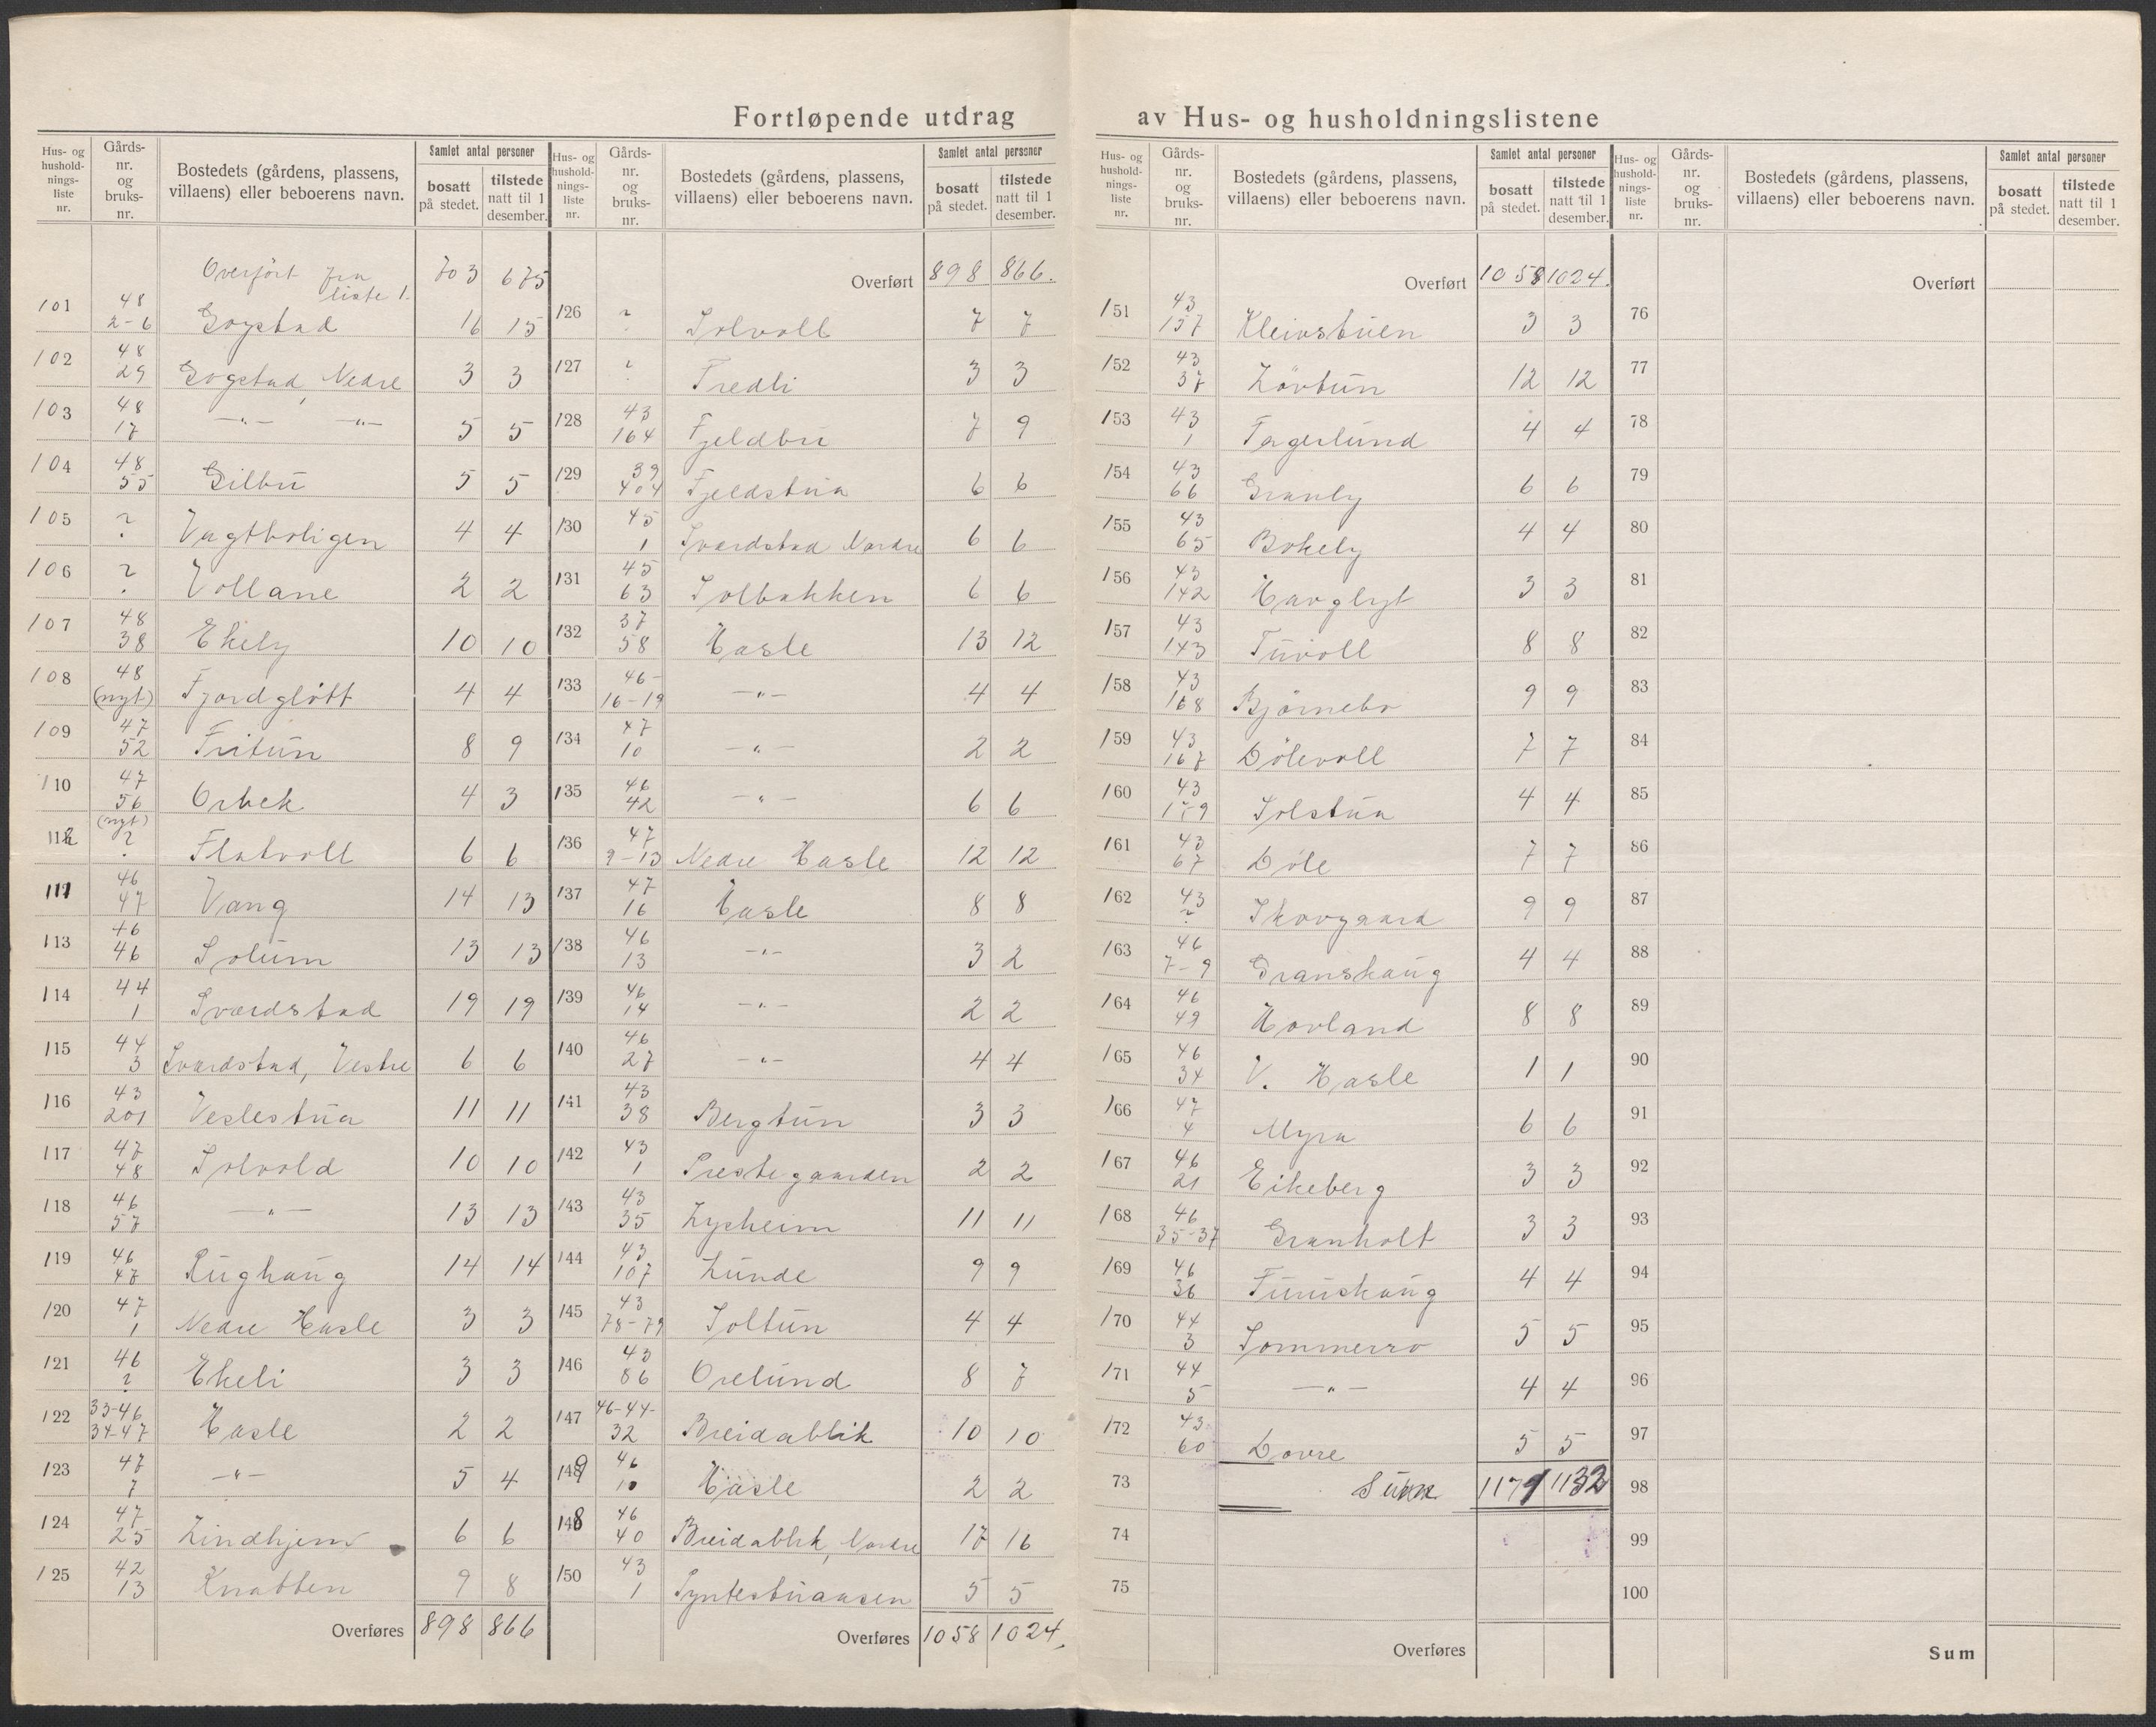 Fortløpende utdrag av Hus- og husholdningslistene
Hus- og husholdnings-liste nr. | Gårds-nr. og bruks-nr. | Bostedets (gårdens, plassens, villaens) eller beboerens navn. | Samlet antal personer: bosatt på stedet. | tilstede natt til 1 desember.
Overført fra liste 1. 703 675
101 48 2-6 Gogstad 16 15
102 48 29 Gogstad, Nedre 3 3
103 48 17 —"— —"— 5 5
104 48 55 Gilbu 5 5
105 ? Vagtboligen 4 4
106 ? Vollane 2 2
107 48 38 Ekely 10 10
108 48 (nyt) Fjordgløtt 4 4
109 47 52 Fritun 8 9
110 47 56 Orbek 4 3
112 (nyt) ? Flatvoll 6 6
111 46 47 Vang 14 13
113 46 46 Solum 13 13
114 44 1 Sværdstad 19 19
115 44 3 Sværdstad, Vestre 6 6
116 43 201 Veslestua 11 11
117 47 48 Solvold 10 10
118 46 57 —"— 13 13
119 46 47 Rughaug 14 14
120 47 1 Nedre Hasle 3 3
121 46 ? Ekeli 3 3
122 33-46 34-47 Hasle 2 2
123 47 7 —"— 5 4
124 47 25 Lindhjem 6 6
125 42 13 Knatten 9 8
Overføres 898 866
Hus- og husholdnings-liste nr. | Gårds-nr. og bruks-nr. | Bostedets (gårdens, plassens, villaens) eller beboerens navn. | Samlet antal personer: bosatt på stedet. | tilstede natt til 1 desember.
Overført 898 866.
126 ? Solvoll 7 7
127 ? Fredli 3 3
128 43 164 Fjeldbu 7 9
129 39 404 Fjeldstua 6 6
130 45 1 Sværdstad Nordre 6 6
131 45 63 Solbakken 6 6
132 37 58 Hasle 13 12
133 46- 16-19 —"— 4 4
134 47 10 —"— 2 2
135 46 42 —"— 6 6
136 47 9-13 Nedre Hasle 12 12
137 47 16 Hasle 8 8
138 46 13 —"— 3 2
139 46 14 —"— 2 2
140 46 27 —"— 4 4
141 43 38 Bergtun 3 3
142 43 1 Prestegaarden 2 2
143 43 35 Lysheim 11 11
144 43 107 Lunde 9 9
145 43 78-79 Soltun 4 4
146 43 86 Orelund 8 7
147 46-44- 32 Breidablik 10 10
149 46 10 Hasle 2 2
148 46 40 Breidablik, Nordre 17 16
150 43 1 5 5
Overføres 1058 1024.
Hus- og husholdnings-liste nr. | Gårds-nr. og bruks-nr. | Bostedets (gårdens, plassens, villaens) eller beboerens navn. | Samlet antal personer: bosatt på stedet. | tilstede natt til 1 desember.
Overført 1058 1024.
151 43 157 Kleivstuen 3 3
152 43 37 Løvtun 12 12
153 43 1 Fagerlund 4 4
154 43 66 Granly 6 6
155 43 65 Bokely 4 4
156 43 142 Havgløt 3 3
157 43 143 Tuvoll 8 8
158 43 168 Bjørnebo 9 9
159 43 167 Dølevoll 7 7
160 43 Solstua 4 4
161 43 67 Døle 7 7
162 43 ? Skovgaard 9 9
163 46 7-9 Granshaug 4 4
164 46 49 Hovland 8 8
165 46 34 V. Hasle 1 1
166 47 4 Myra 6 6
167 46 21 Eikeberg 3 3
168 46 35-37 Granholt 3 3
169 46 36 Furushaug 4 4
170 44 3 Sommerro 5 5
171 44 5 —"— 4 4
172 43 60 Dovre 5 5
73 Sum 1171 1132
74
75
Overføres
Hus- og husholdnings-liste nr. | Gårds-nr. og bruks-nr. | Bostedets (gårdens, plassens, villaens) eller beboerens navn. | Samlet antal personer: bosatt på stedet. | tilstede natt til 1 desember.
Overført
76
77
78
79
80
81
82
83
84
85
86
87
88
89
90
91
92
93
94
95
96
97
98
99
100
Sum